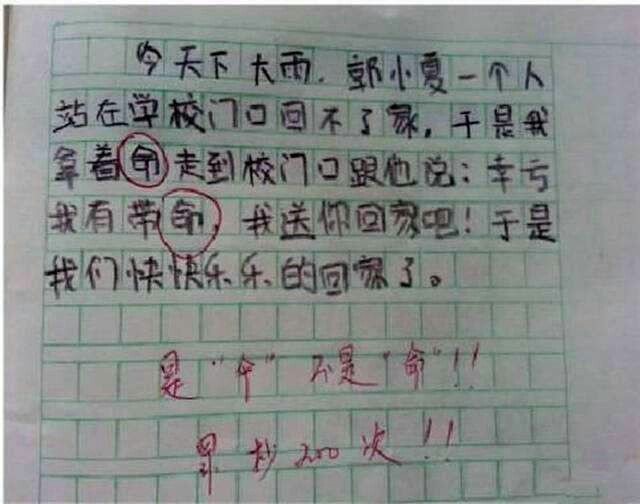 今天下大雨，郭小夏一个人
站在学校门口回不了家，于是我
拿着命走到校门口跟他说：幸亏
我有带命，我送你回家吧！于是
我们快快乐乐的回家了。
是"伞"不是"命"!!
罚抄200次!!